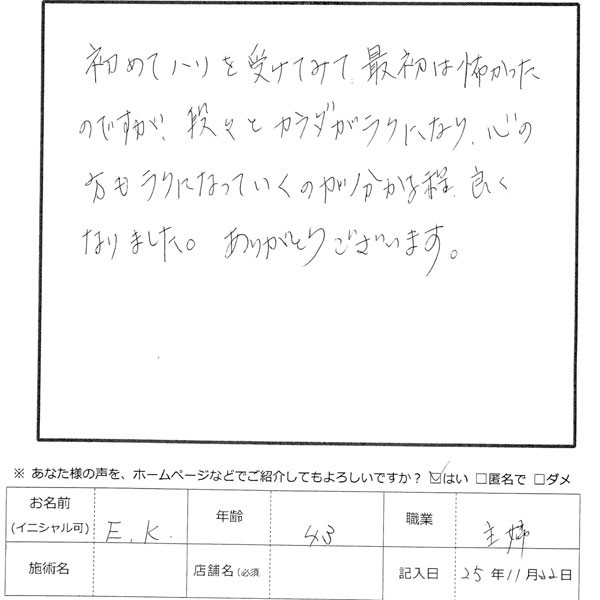 初めてハリを受けてみて、最初は怖かった
のですが、段々とカラダがラクになり、心の
方もラクになっていくのが分かる程、良く
なりました。ありがとうございます。
※ あなた様の声を、ホームページなどでご紹介してもよろしいですか? ☑はい □匿名で □ダメ
お名前 (イニシャル可) E.K. 年齢 43 職業 主婦
施術名 店舗名(必須 記入日 25年11月22日